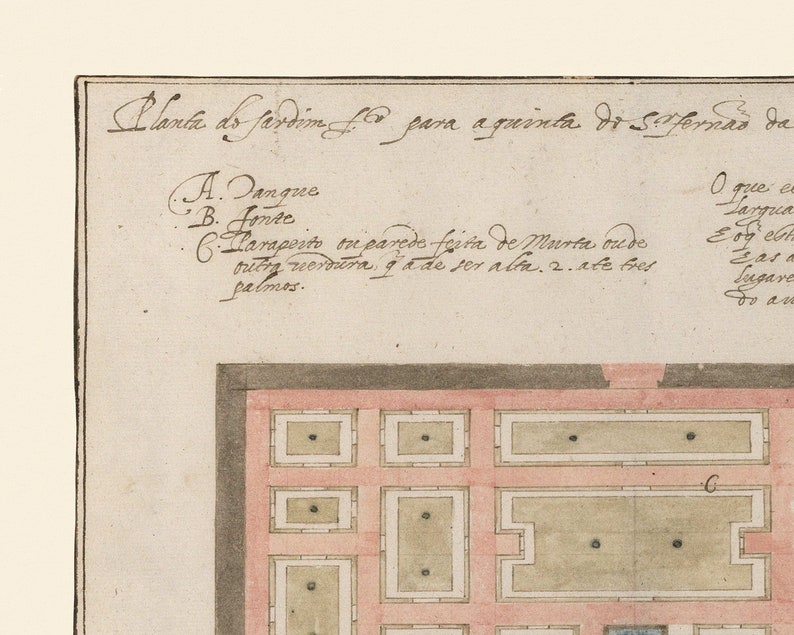 Planta do Jardim f.to para a quinta do S.r fernaõ da
A. Tanque
B. fonte
C. Parapeito ou parede feita de Murta ou de
outra verdura, q̃ a de ser alta .2. ate tres
palmos.
O que e
largua
E oq̃ est
E as a
lugare
do a
C